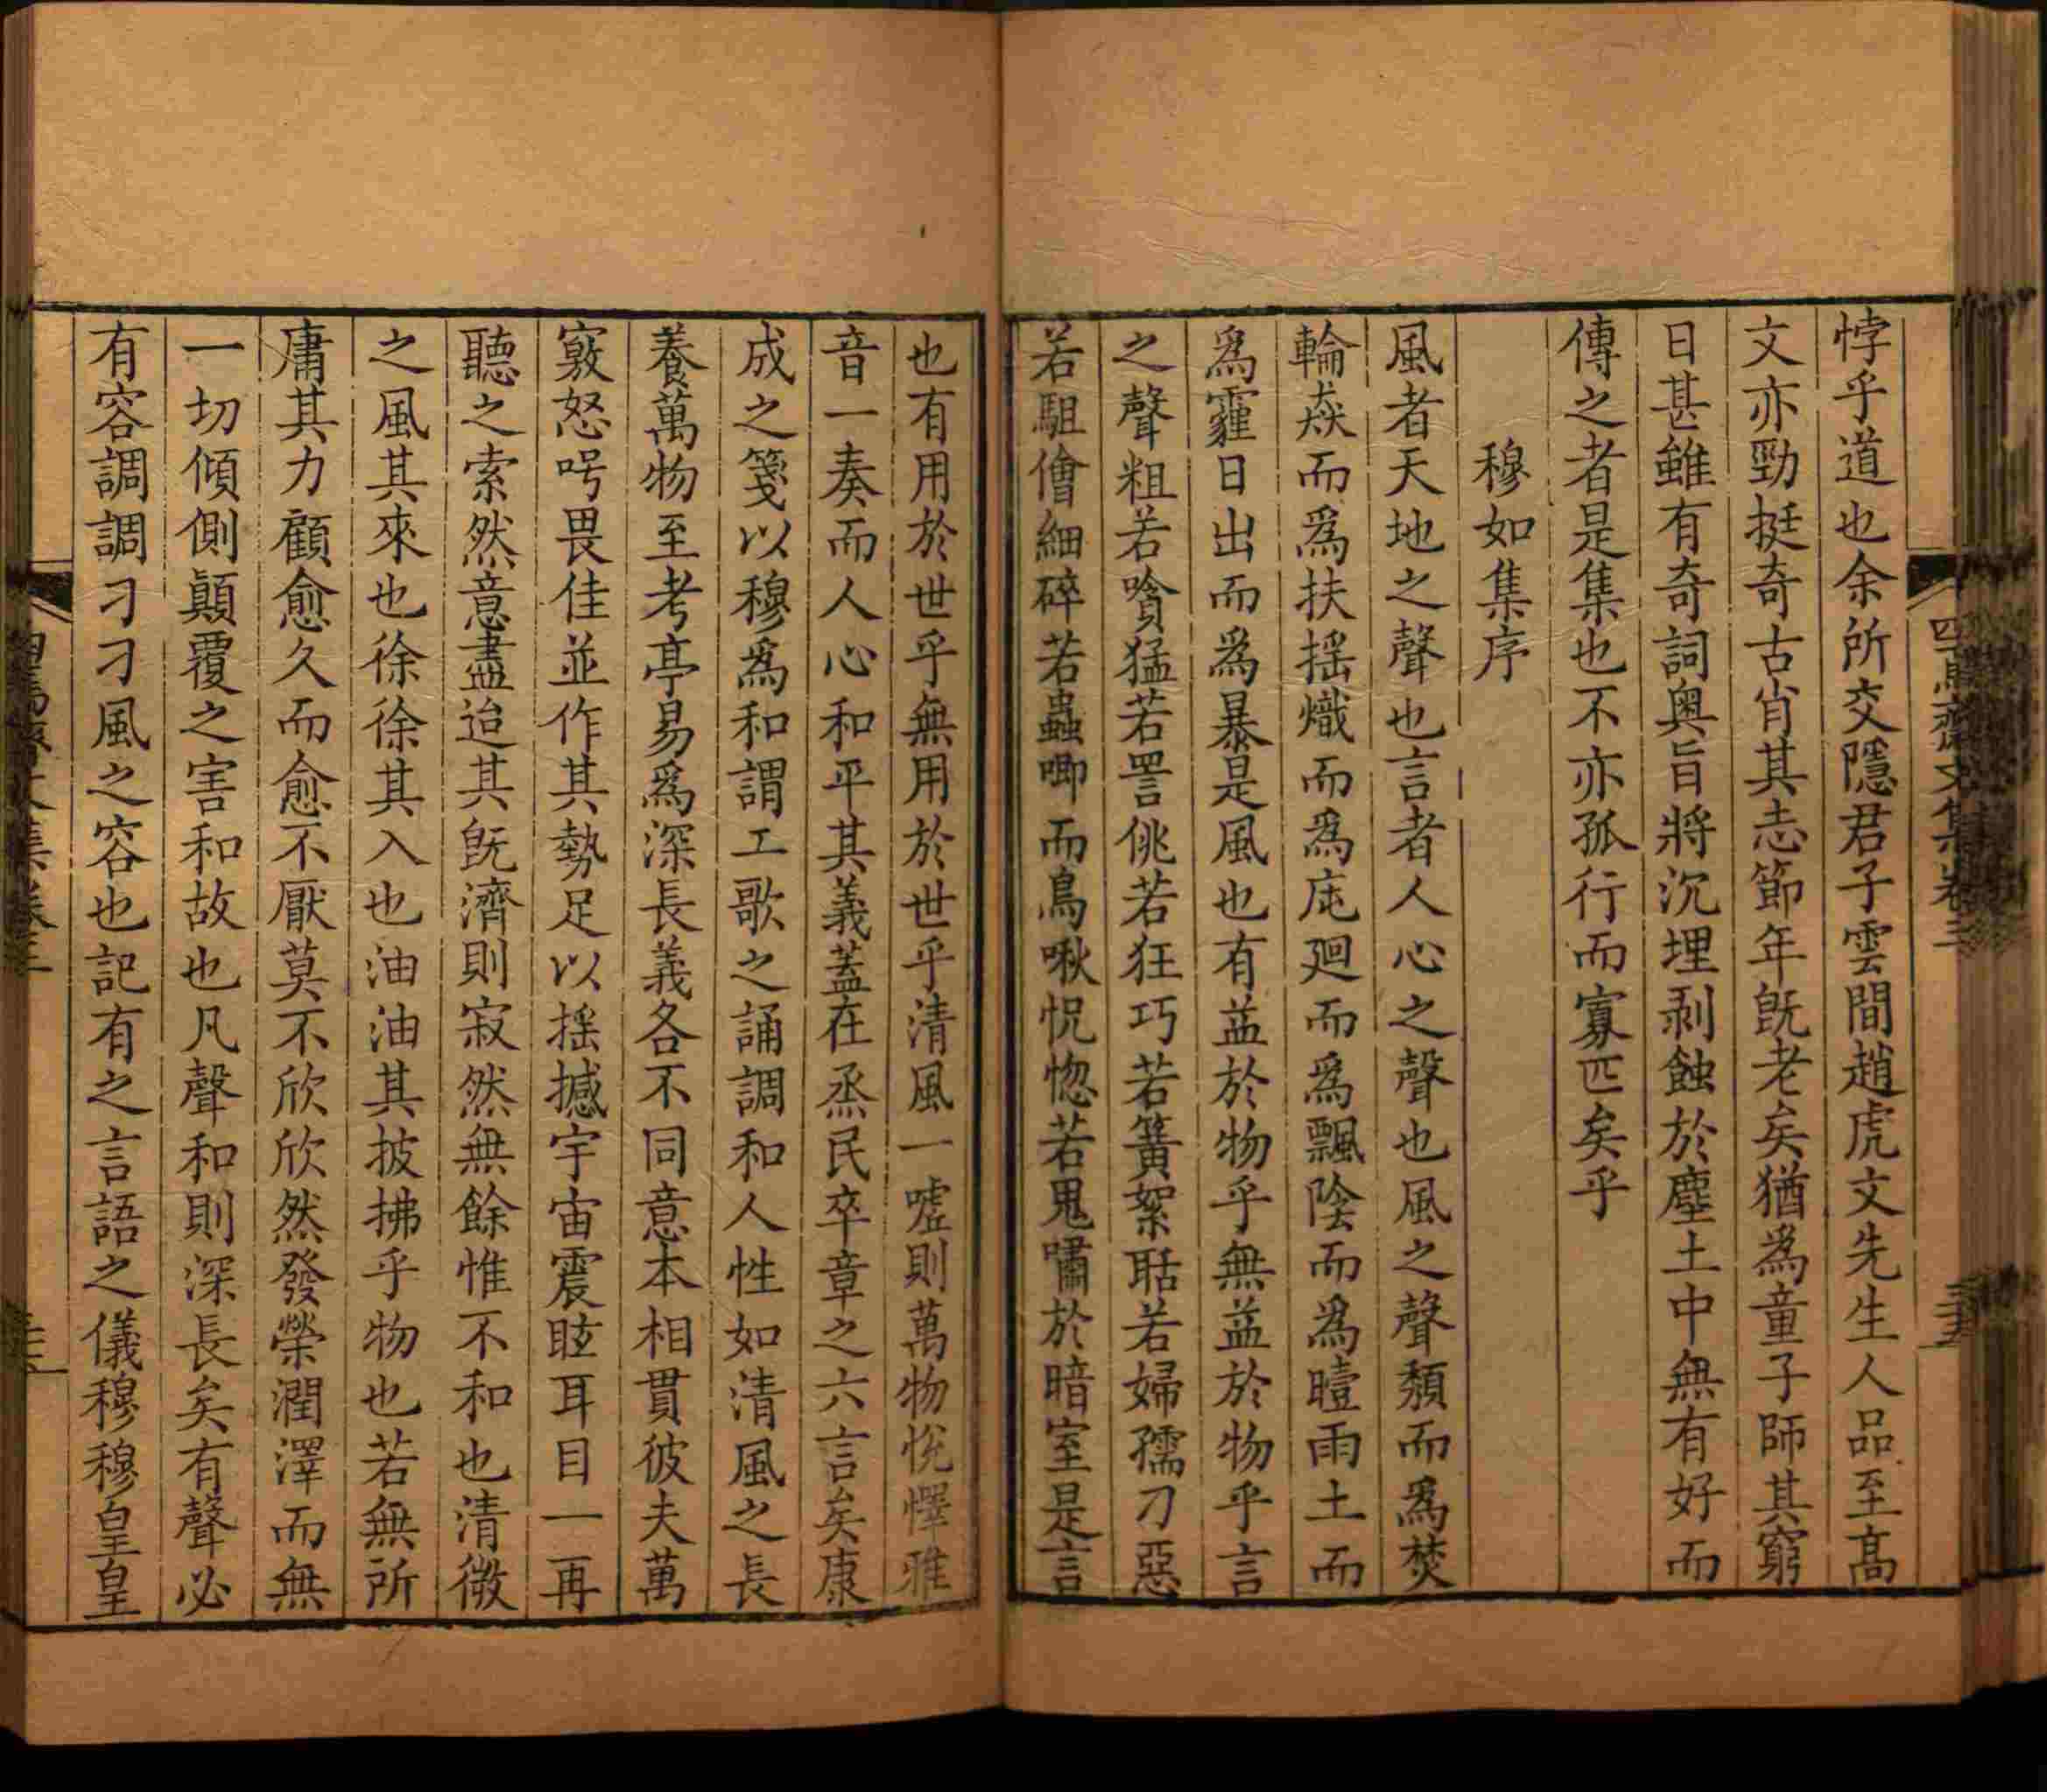 悖乎道也余所交隱君子雲間趙虎文先生人品至高
文亦勁挺奇古肖其志節年既老矣猶為童子師其窮
日甚雖有奇詞奧旨將沉埋剥蝕於塵土中無有好而
傳之者是集也不亦孤行而寡匹矣乎
穆如集序
風者天地之聲也言者人心之聲也風之聲頹而爲焚
輪猋而爲扶摇熾而爲庉廻而爲飄陰而爲曀雨土而
爲霾日出而爲暴是風也有益於物乎無益於物乎言
之聲粗若嗿猛若詈佻若狂巧若簧絮聒若婦孺刀惡
若駔儈細碎若蟲唧而鳥啾怳惚若鬼嘯於暗室是言
也有用於世乎無用於世乎清風一噓則萬物悅懌雅
音一奏而人心和平其義蓋在烝民卒章之六言矣康
成之箋以穆爲和謂工歌之誦調和人性如清風之長
養萬物至考亭易爲深長義各不同意本相貫彼夫萬
竅怒呺畏佳並作其勢足以摇撼宇宙震眩耳目一再
聽之索然意盡迨其旣濟則寂然無餘惟不和也清微
之風其來也徐徐其入也油油其披拂乎物也若無所
庸其力顧愈久而愈不厭莫不欣欣然發榮潤澤而無
一切傾側顚覆之害和故也凡聲和則深長矣有聲必
有容調調刁刁風之容也記有之言語之儀穆穆皇皇
四焉齋文集卷三